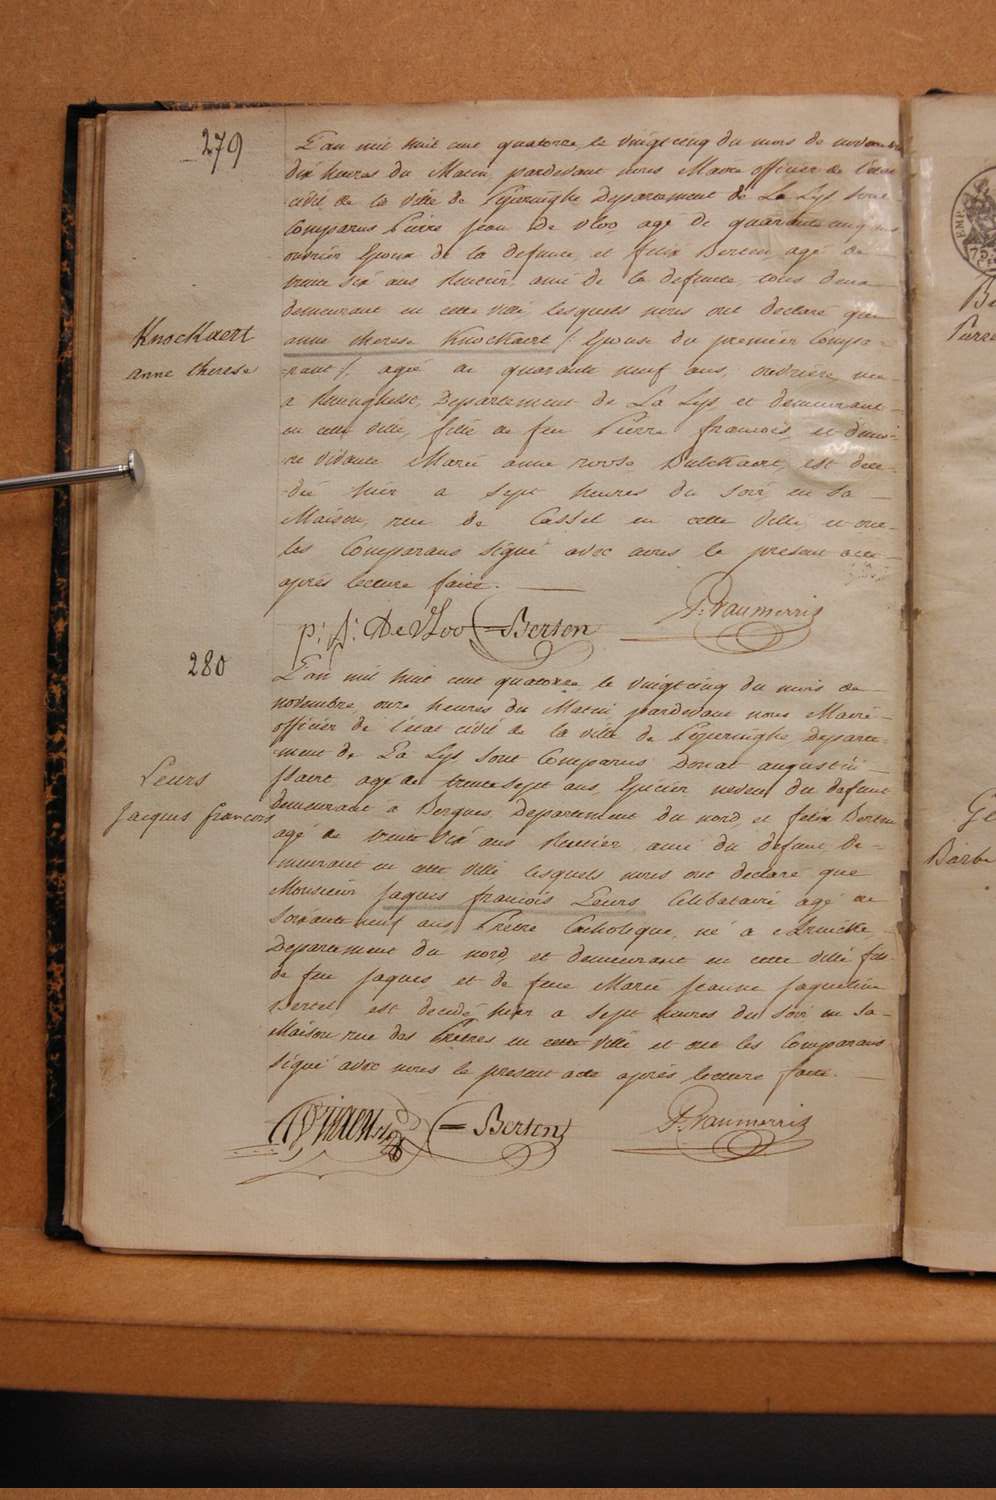 279
L'an mil huit cent quatorze le vingt cinq du mois de novembre
dix heures du Matin, pardevant nous Maire officier de l'etat
civil de la ville de Poperinghe Departement de La Lys sont
Comparus Pierre Jean De Vloo agé de quarante cinq ans
ouvrier Epoux de la defunte, et felix Berten agé de
trente six ans  ami de la defunte tous deux
demeurant en cette ville lesquels nous ont declaré que
Knockaert
anne therese Knockaert /: Epouse du premier Compa-
anne therese
-rant :/ agée de quarante neuf ans, ouvriere, née
a  Departement de La Lys et demeurant
en cette ville, fille de feu Pierre francois, et d'une
 vivante Marie anne  est dece-
-dée hier a sept heures du soir, en sa
Maison, rue de Cassel en cette ville, et ont
les Comparans signé avec nous le present acte
après lecture faite.
p: J: De Vloo Berten
280
L'an mil huit cent quatorze le vingt cinq du mois de
novembre, onze heures du Matin pardevant nous Maire
officier de l'etat civil de la ville de Poperinghe Departe-
-ment de La Lys sont Comparus Donat augustin
 agé de trente sept ans, Epicier neveu du defunt
Leurs
demeurant a Bergues Departement du nord, et felix Berten
Jacques francois
agé de trente six ans  ami du defunt De-
-meurant en cette ville lesquels nous ont declaré que
Monsieur Jaques francois Leurs Celibataire agé de
soixante neuf ans Prêtre Catholique, né a
Departement du nord, et demeurant en cette ville fils
de feu Jaques et de feue Marie Jeanne Jaqueline
 est decedé hier a sept heures du soir en sa
Maison rue des Prêtres en cette ville et ont les Comparans
signé avec nous le present acte après lecture faite.
Berten